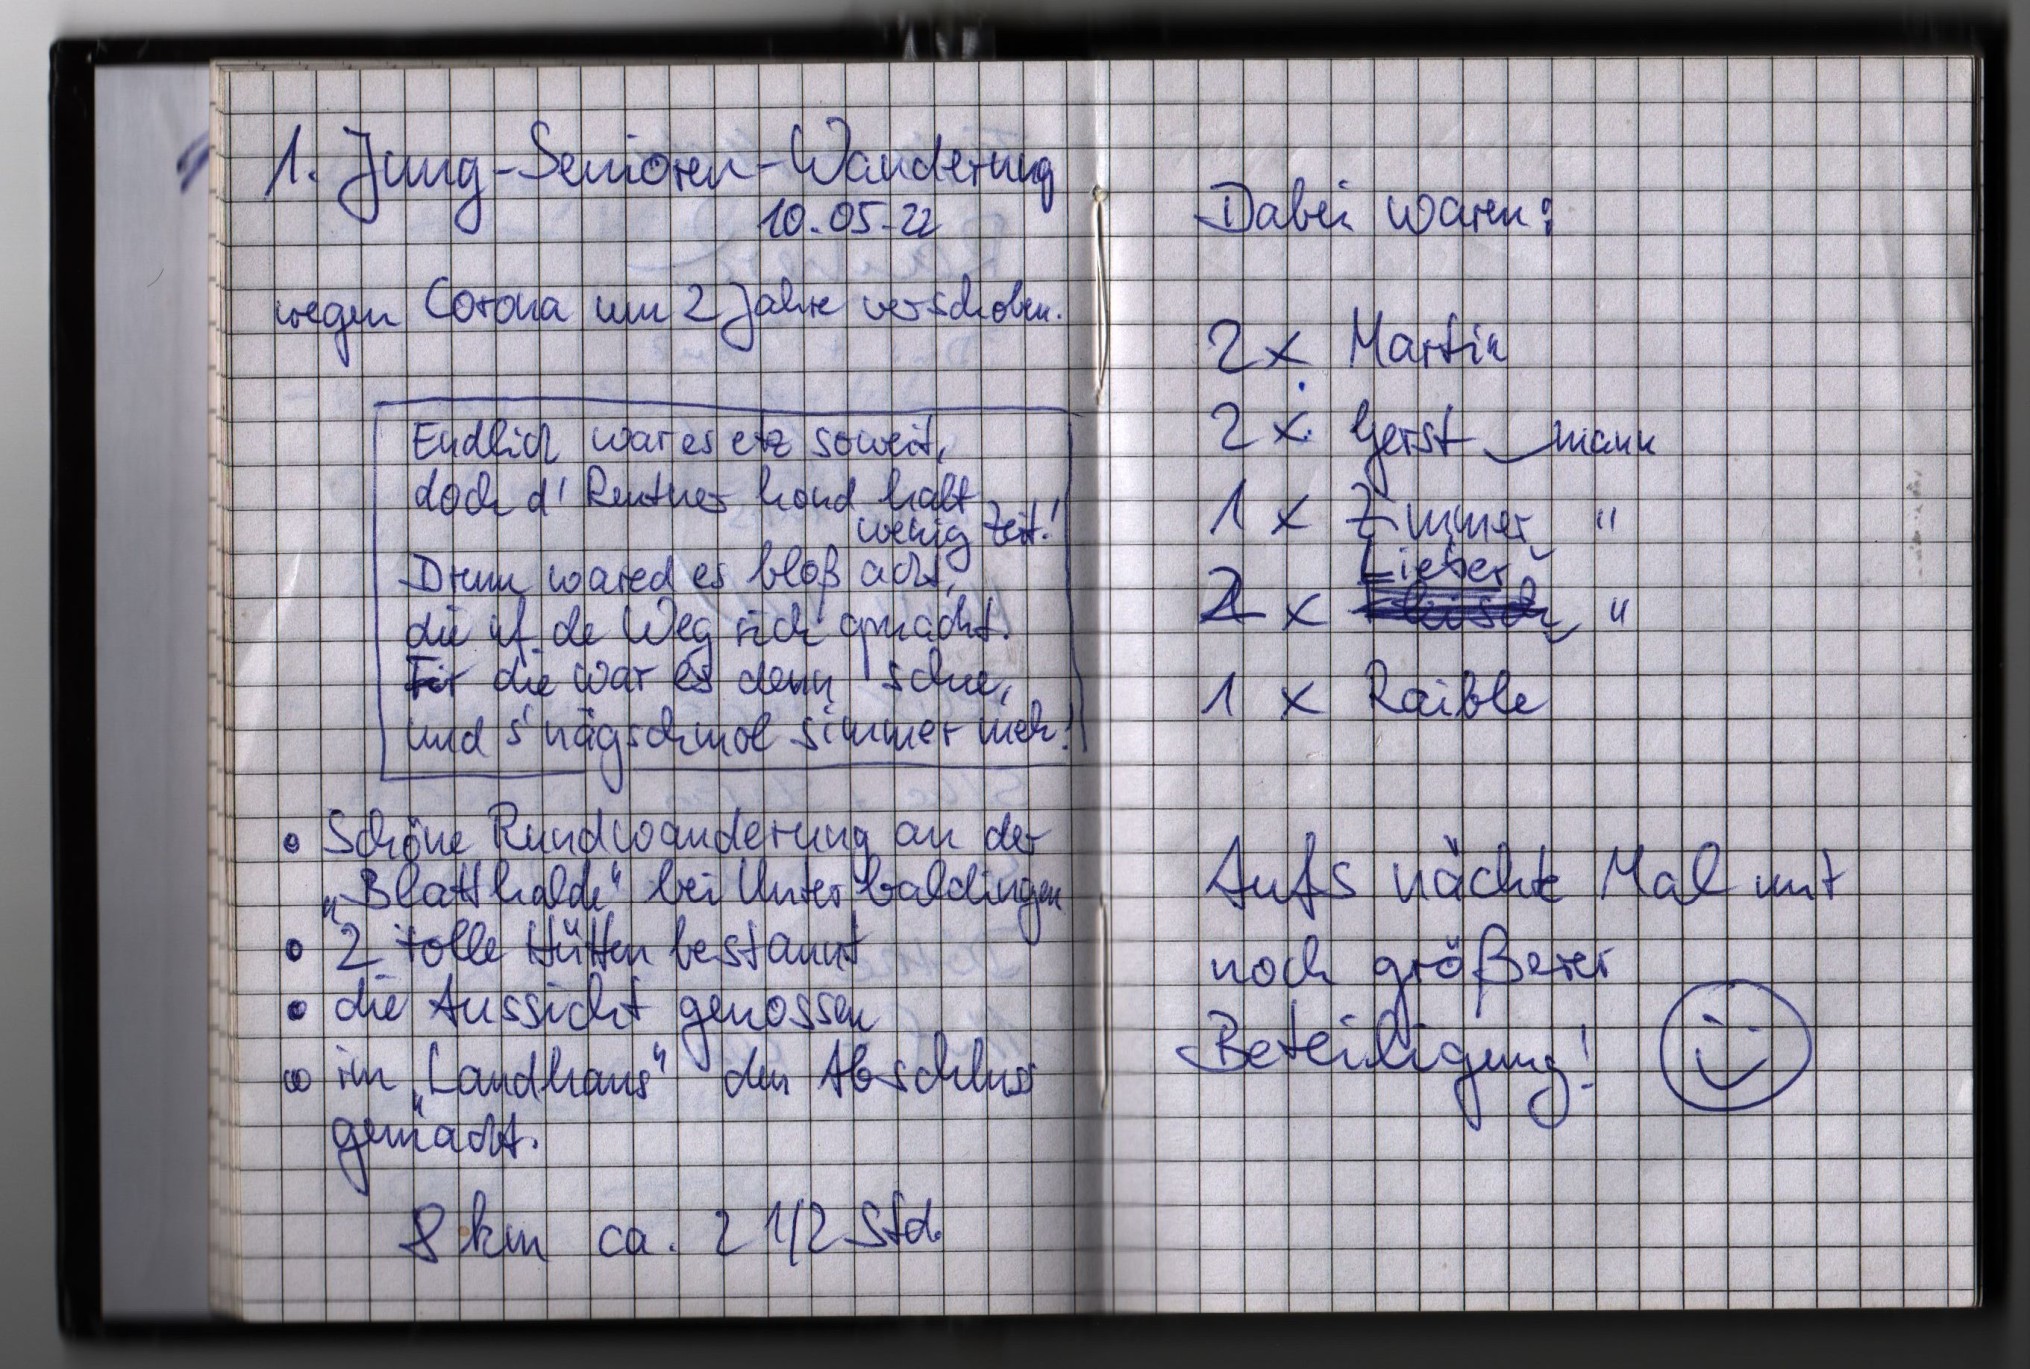 1. Jung-Senioren-Wanderung
10.05.22
wegen Corona um 2 Jahre verschoben.
Endlich war es etz soweit,
doch d' Rentner hond halt
wenig Zeit!
Drum wared es bloß acht,
die uf de Weg sich gmacht.
Für die war es denn schee,
und s' nägschmol simmer meh!
• Schöne Rundwanderung an der
„Blatthalde“ bei Unterbaldingen
• 2 tolle Hütten bestaunt
• die Aussicht genossen
• im „Landhaus“ den Abschluss
gemacht.
8 km ca. 2 1/2 Std.
Dabei waren:
2 x Martin
2 x Gerst mann
1 x Zimmer "
Lieber
2 x "
1 x Raible
Aufs nächte Mal mit
noch größerer
Beteiligung!